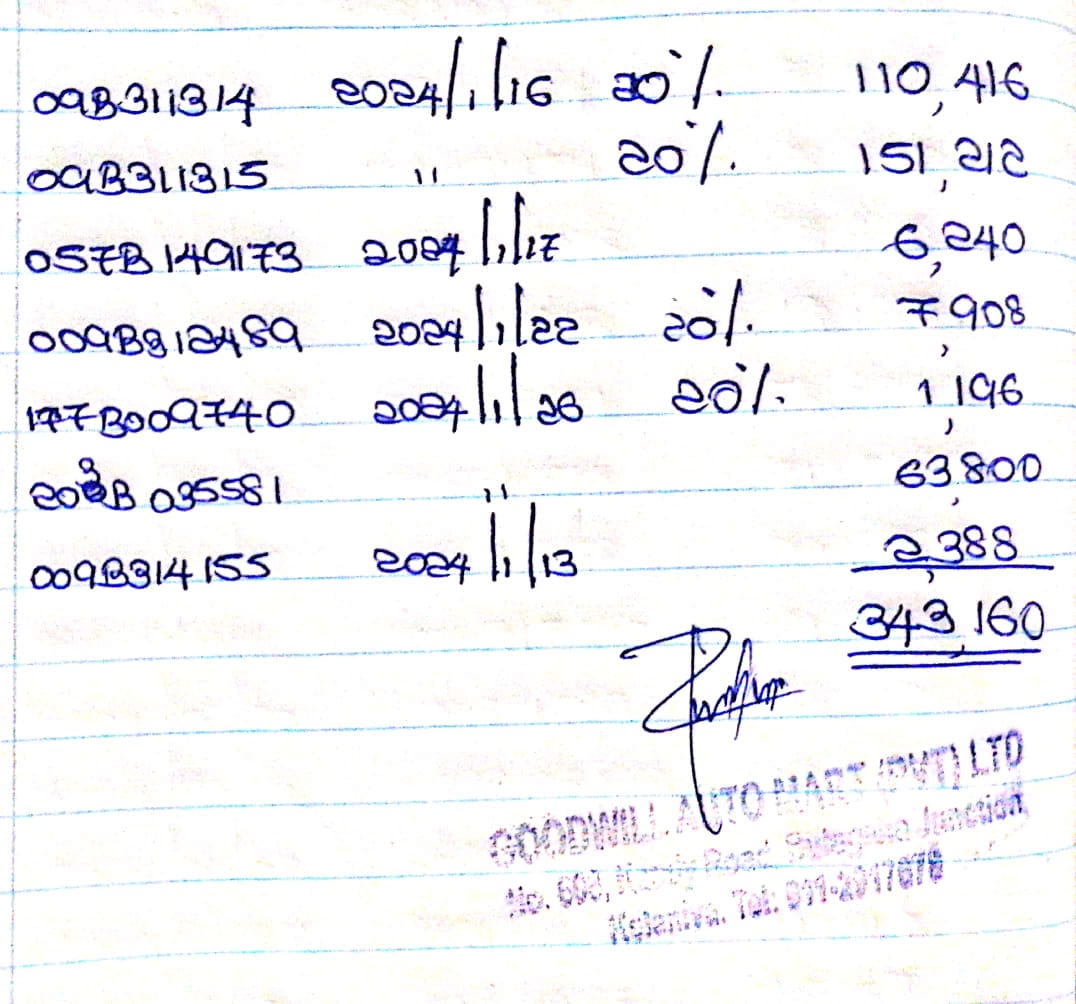 09B311314 2024/1/16 20% 110,416
09B311315 " 20% 151,212
057B149173 2024/1/17 6,240
009B312489 2024/1/22 20% 7,908
177B009740 2024/1/26 20% 1,196
203B035581 " 63,800
009B314155 2024/1/13 2,388
343,160
GOODWILL AUTO MART (PVT) LTD
No. Road, Junction
Kelaniya. Tel: 011-2917676